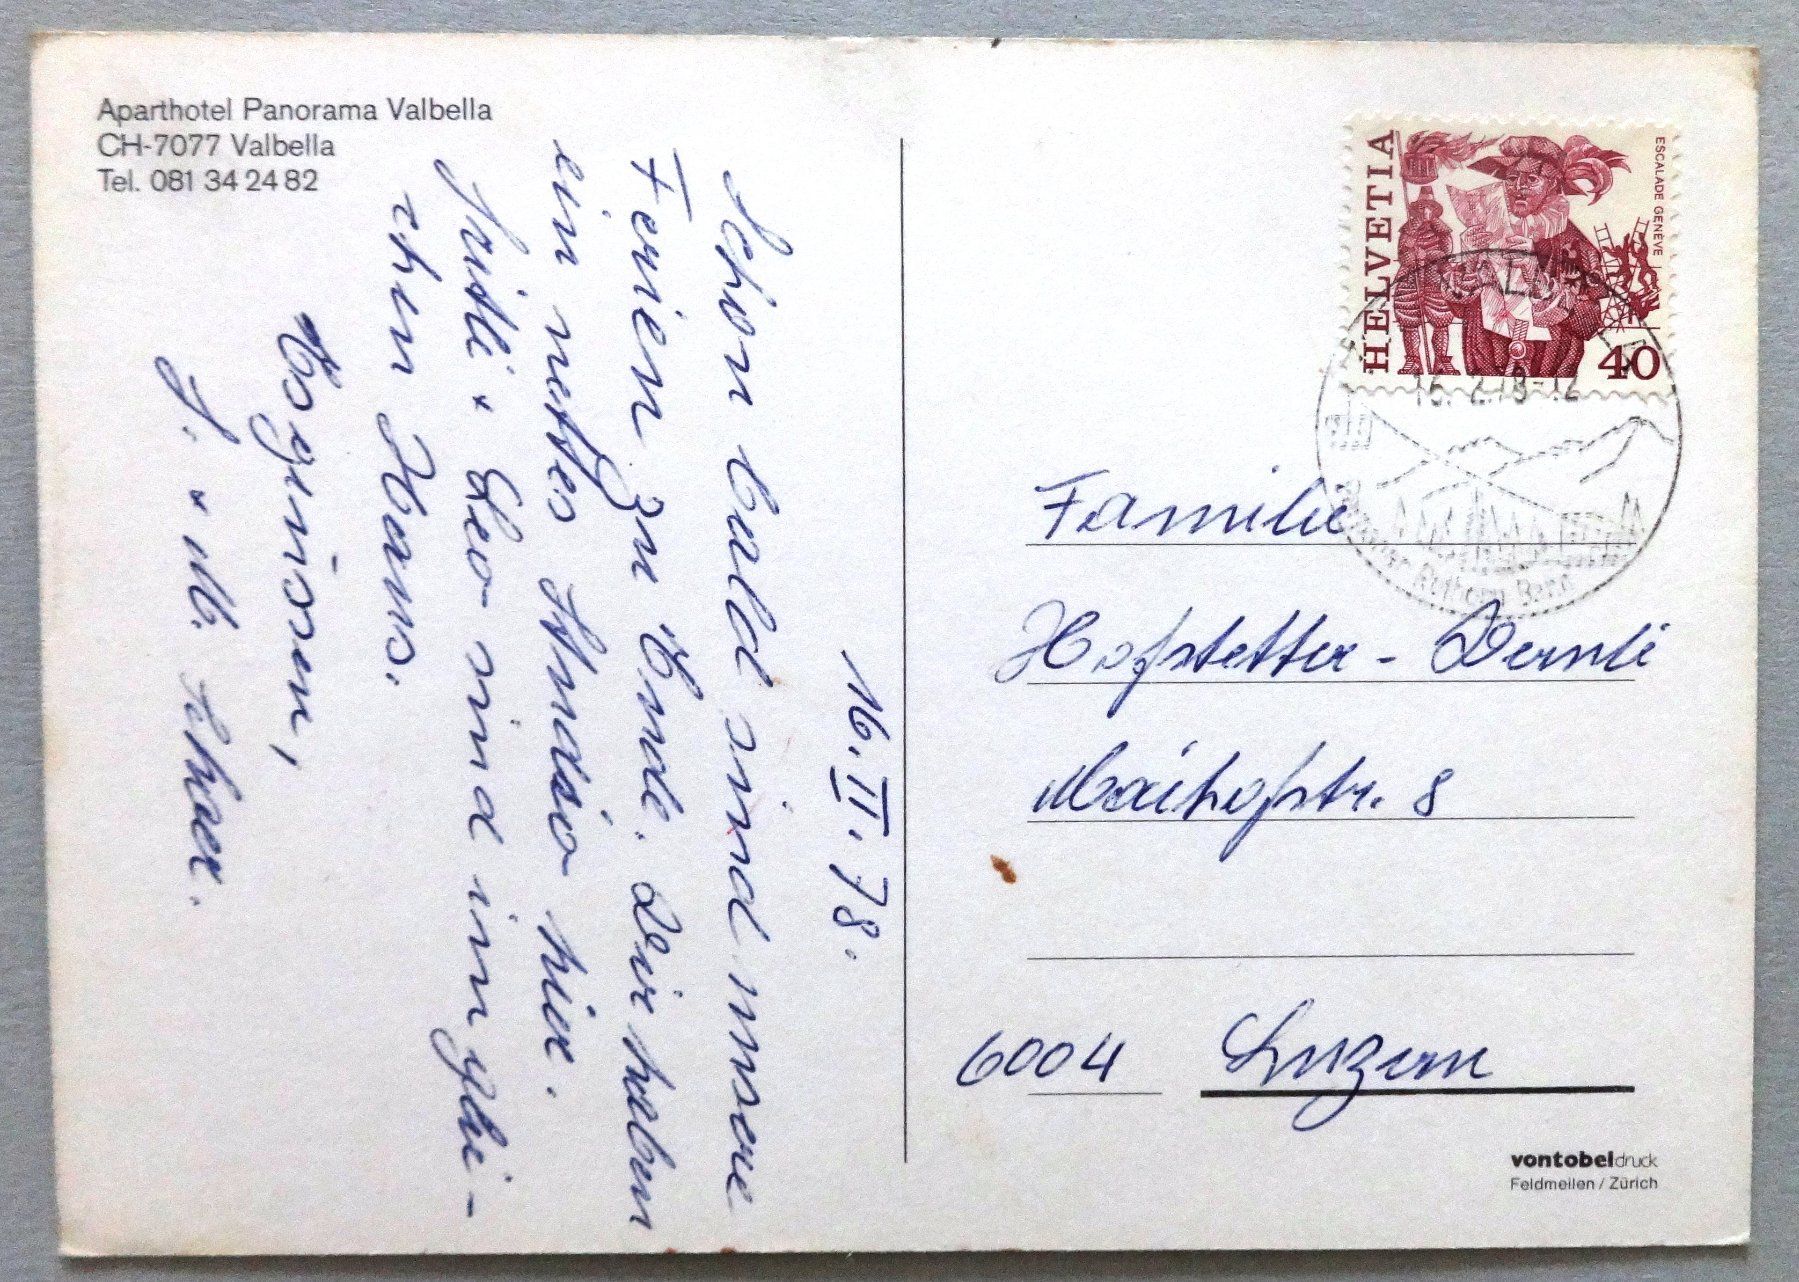 Aparthotel Panorama Valbella
CH-7077 Valbella
Tel. 081 34 24 82
16. II. 78.
Schon bald sind unsere
Ferien zu Ende. Wir haben
ein nettes Studio hier.
Leo sind im glei-
chen Haus.
J. + M.
HELVETIA
ESCALADE GENÈVE
40
16. 2. 78-12
Familie
Hofstetter - Wernli
Maihofstr. 8
6004 Luzern
vontobeldruck
Feldmeilen / Zürich